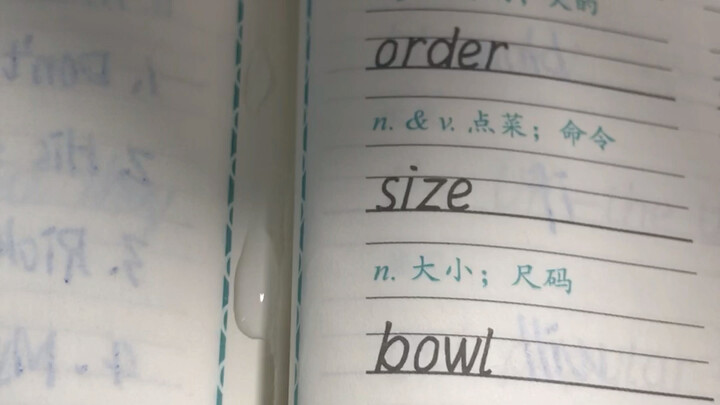 1. Don't
2. His
3. Rich
4. My
的
order
n. & v. 点菜；命令
size
n. 大小；尺码
bowl